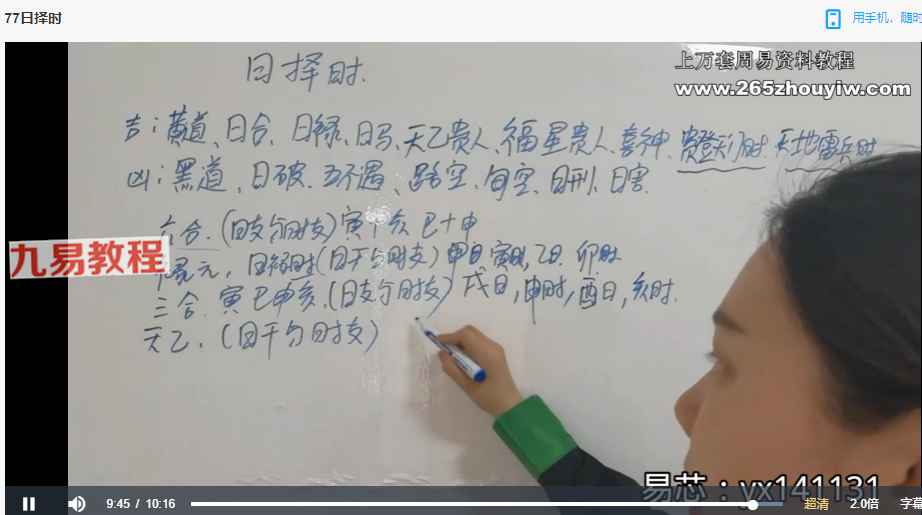 77日择时
用手机、随时
日择时.
上万套周易资料教程
www.265zhouyiw.com
吉：黄道、日合、日禄、日马、天乙贵人、福星贵人、喜神、贵登天门时、天地雷兵时
凶：黑道、日破、五不遇、路空、旬空、日刑、日害
六合.(日支与时支)寅十亥 巳十申
九易教程
元，日禄时(日干与时支)甲日寅时,乙日.卯时
三合.寅巳申亥.(日支与时支)戌日,申时,酉日,亥时.
天乙.(日干与日时支)
易芯：yx141131
9:45 / 10:16
超清
2.0倍
字幕